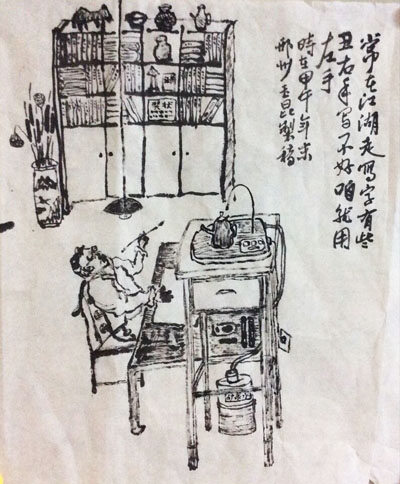 常在江湖走写字有些
丑右手写不好咱就用
左手
時在甲午年末
邢州王昆製稿